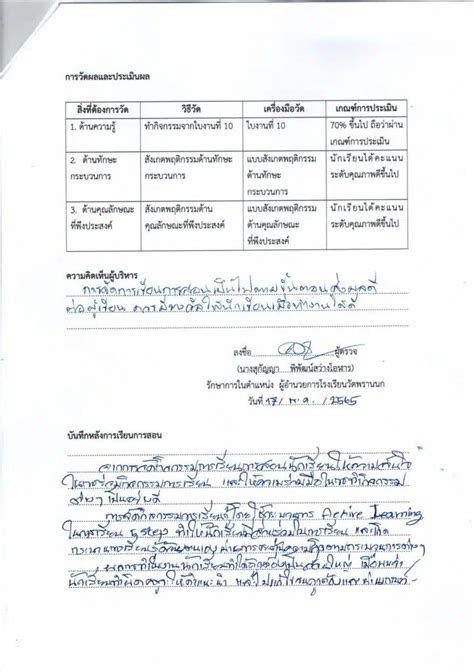 การวัดผลและประเมินผล
สิ่งที่ต้องการวัด วิธีวัด เครื่องมือวัด เกณฑ์การประเมิน
1. ด้านความรู้ ทำกิจกรรมจากใบงานที่ 10 ใบงานที่ 10 70% ขึ้นไป ถือว่าผ่าน
เกณฑ์การประเมิน
2. ด้านทักษะ สังเกตพฤติกรรมด้านทักษะ แบบสังเกตพฤติกรรม นักเรียนได้คะแนน
กระบวนการ กระบวนการ ด้านทักษะ ระดับคุณภาพดีขึ้นไป
กระบวนการ
3. ด้านคุณลักษณะ สังเกตพฤติกรรมด้าน แบบสังเกตพฤติกรรม นักเรียนได้คะแนน
ที่พึงประสงค์ คุณลักษณะที่พึงประสงค์ ด้านคุณลักษณะ ระดับคุณภาพดีขึ้นไป
ที่พึงประสงค์
ความคิดเห็นผู้บริหาร
การจัดการเรียนการสอนเป็นไปตามขั้นตอน ส่งผลดี
ต่อผู้เรียน ให้นักเรียน ทำงานได้ดี
ลงชื่อ ผู้ตรวจ
(นางสุกัญญา พิพัฒน์สว่างโอฬาร)
รักษาการในตำแหน่ง ผู้อำนวยการโรงเรียนวัดพรานนก
วันที่ 17/ พ.ค. / 2565
บันทึกหลังการเรียนการสอน
จากการจัดกิจกรรมการเรียนการสอนนักเรียนให้ความสนใจ
ในการร่วมกิจกรรมการเรียน และให้ความร่วมมือในการทำกิจกรรม
ต่างๆ เป็นอย่างดี
การจัดกิจกรรมการเรียนรู้โดยใช้กระบวนการ Active Learning
5 step ทำให้นักเรียนมีส่วนร่วมในการเรียน และเกิด
นักเรียนทำ ให้คำแนะนำ และ